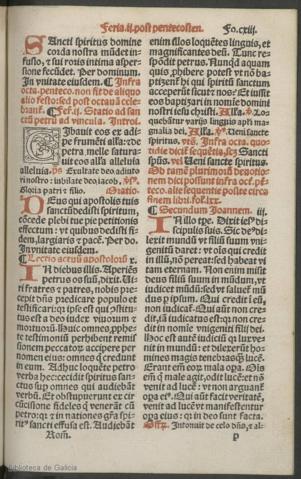 Feria.ij.post pentecosten. Fo.cxiij.
Sancti spiritus domine
corda nostra mūdet in-
fusio, & sui roris intima asper-
sione fecūdet. Per dominum.
In vnitate eiusdem. Infra
octa.penteco.non fit de aliquo
alio festo: sed post octauā cele-
brant. Fe.ij. Statio ad san
ctū petrū ad vincula. Introi.
Cibauit eos ex adi-
pe frumēti alla: de
petra melle satura-
uit eos alla alleluia
alleluia. ps Exultate deo adiuto
ri nostro: iubilate deo iacob.
Gloria patri & filio. Oratio.
Deus qui apostolis tuis
sanctū dedisti spiritum,
cōcede plebi tue pie petitionis
effectum: vt quibus dedisti fi-
dem, largiaris & pacē. Per do.
In vnitate eiusdem.
Lectio actuū apostolorū x.
In diebus illis. Aperiēs
petrus os suū, dixit. Ui-
ri fratres & patres, nobis pre-
cepit dn̄s predicare populo et
testificari: qr ipse est qui cōstitu-
tus est a deo iudex viuorum &
mortuorū. Huic omnes pphe-
te testimoniū perhibent remis
sionem peccatorū accipere per
nomen eius: omnes q̄ credunt
in eum. Adhuc loquēte petro
verba hec: cecidit spiritus san-
ctus sup omnes qui audiebāt
verbū. Et obstupuerunt ex cir
cūcisione fideles q̄ venerāt cū
petro: qr & in nationes grā spi-
rit' sancti effusa est. Audiebāt
Rom̄.
enim illos loquētes linguis, et
magnificantes deū. Tunc res
pōdit petrus. Nunqd aquam
quis phibere potest vt nō ba-
ptizent̄ hi qui spiritū sanctum
acceperūt sicut & nos? Et iussit
eos baptizari in nomine domini
nostri iesu christi. Alla. Lo-
quebātur varijs linguis apli ma
gnalia dei. Alla. Ueni sancte
spiritus. Infra octa. quo-
tidie dicit̄ sequētia, scz Sancti
spūs. vel Ueni sancte spiritus.
Secundum Joannem. iij.
In illo tpe. Dixit iesus di-
scipulis suis. Sic deus di-
lexit mundū vt filiū suum vni-
genitū daret: vt ois qui credit
in illū, nō pereat: sed habeat vi
tam eternam. Non enim misit
deus filiū suum in mūdum, vt
iudicet mūdū: sed vt saluet̄ mū
dus p ipsum. Qui credit ī eū,
non iudicat̄. Qui aūt non cre-
dit, iā iudicatus est: qr non cre
dit in nomīe vnigeniti filij dei.
Hoc est autē iudiciū qr lux ve-
nit in mundū: et dilexerūt ho-
mines magis tenebras q̄ lucē.
Erant em̄ eorū mala opa. Ois
em̄ q̄ male agit, odit lucē: et nō
venit ad lucē: vt non arguant̄
opa ei'. Qui aūt facit veritatē,
venit ad lucē vt manifestentur
opa eius: qr in deo sunt facta.
Intonuit de celo dn̄s, et al-
p
Biblioteca de Galicia